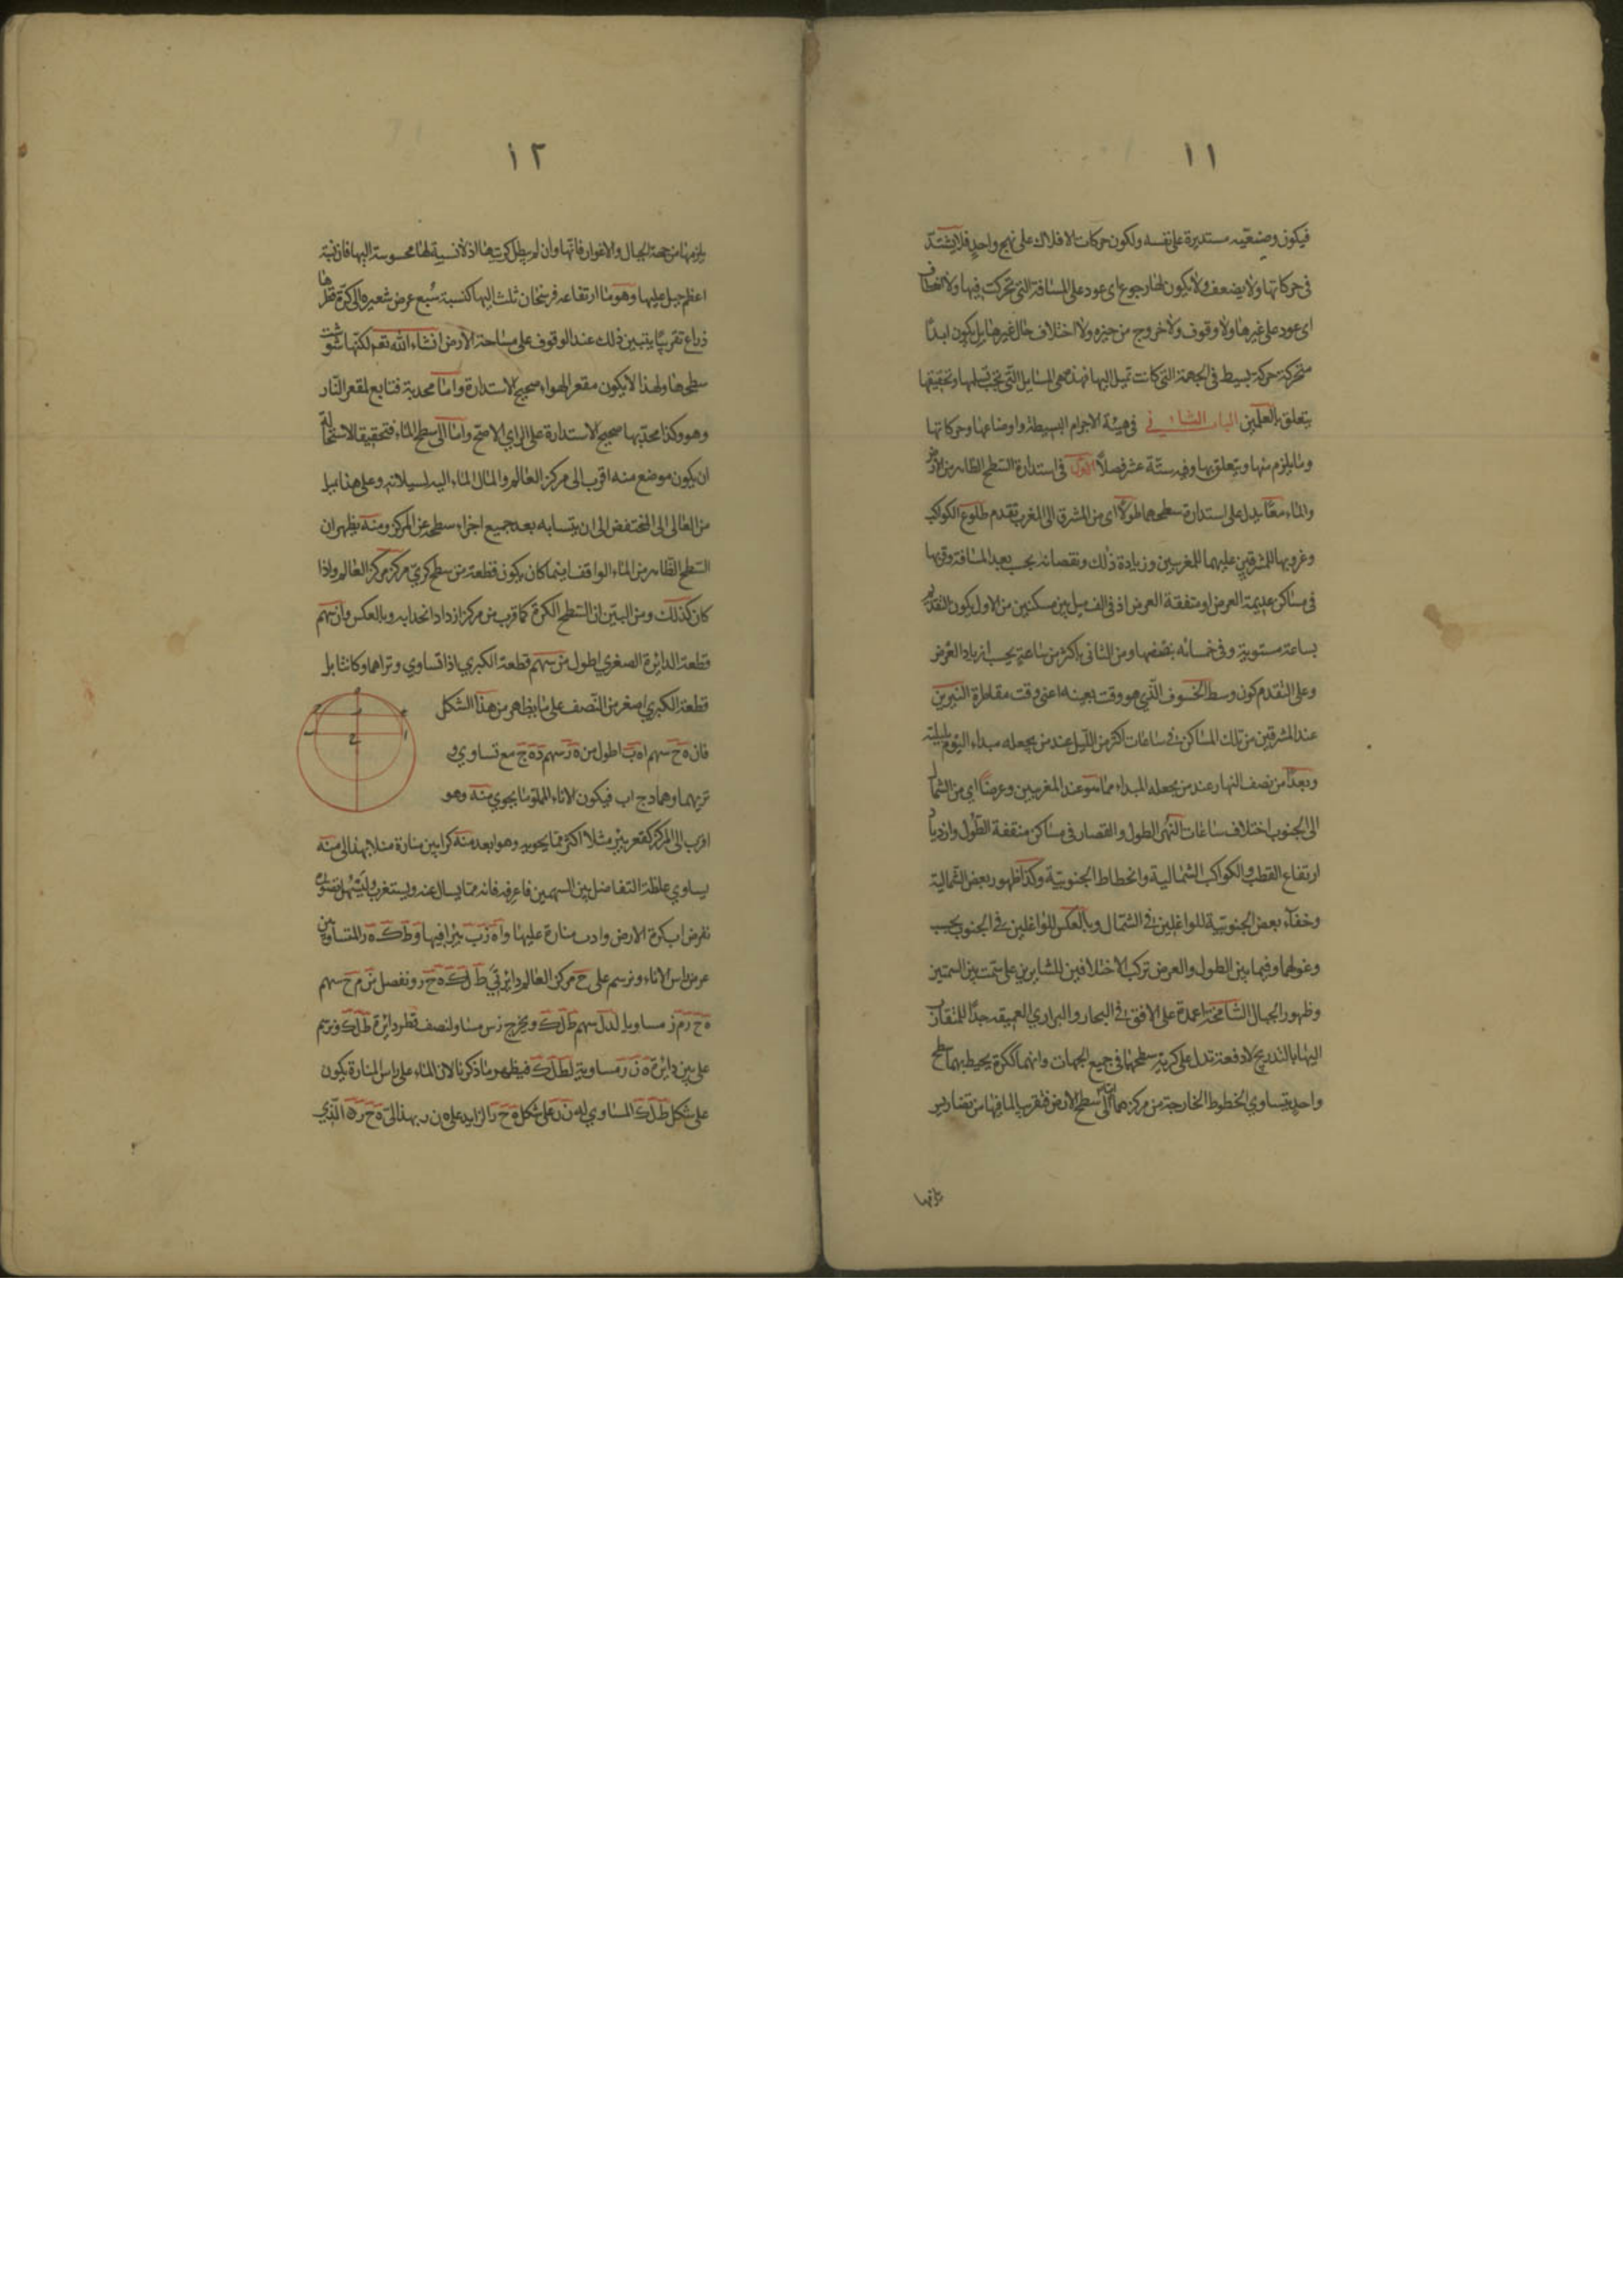 ١١
فيكون وضعيه مستديرة على نفسه ولكون حركات الافلاك على نهج واحد فلا يشتد
فى حركاتها ولا يضعف ولا يكون لها رجوع اى عود على المسافة التى تحركت فيها ولا انعطاف
اى عود على غيرها ولا وقوف ولا خروج من حيزه ولا اختلاف حال غيرها بل يكون ابدًا
متحركة حركة بسيط فى الجهة التى كانت تميل اليها فهذه هى المسايل التى يجب تسلمها وتحقيقها
يتعلق بالعلمين الباب الثانى فى هيئة الاجرام البسيطة واوضاعها وحركاتها
وما يلزم منها ويتعلق بها وفيه ستة عشر فصلًا الاول فى استدارة السطح الظاهر من الارض
والماء معًا يدل على استدارة سطحهما طولًا اى من المشرق الى المغرب تقدم طلوع الكواكب
وغروبها للمشرقين عليهما للمغربين وزيادة ذلك ونقصانه بحسب بعد المسافة وقربها
فى مساكن عديمة العرض او متفقة العرض اذ فى الف ميل بين مسكنين من الاول يكون التقدم
بساعة مستوية وفى خسمائه بنصفها ومن الثانى باكثر من ساعة بحسب ازدياد العرض
وعلى التقدم كون وسط الخسوف الذى هو وقت بعينه اعنى وقت مقاطرة النيرين
عند المشرقين من تلك المساكن فى ساعات اكثر من الليل عند من يجعله مبداء اليوم بليلته
وبعدًا من نصف النهار عند من يجعله المبداء مما هو عند المغربين وعرضًا اى من الشمال
الى الجنوب اختلاف ساعات النهر الطول والقصار فى مساكن متفقة الطول وازدياد
ارتفاع القطب والكواكب الشمالية وانحطاط الجنوبية وكذا ظهور بعض الشمالية
وخفآء بعض الجنوبية للواغلين فى الشمال وبالعكس للواغلين فى الجنوب بحسب
وغولهما وفيما بين الطول والعرض تركب الاختلافين للسايرين على سمت بين السمتين
وظهور الجبال الشامخة اعمدة على الافق فى البحار والبرارى العميقه جدًا للمتقارب
اليها بالتدريج لا دفعة تدل على كرية سطحها فى جميع الجهات وانهما ككرة يحيط بهما سطح
واحد يتساوى الخطوط الخارجة من مركزهما الى سطح الارض فتقريب لما فيها من تضاريس
١٢
يلزمها من جهة الجبال والاغوار فانها وان لم يبطل كريتها اذ لا نسبة لها محسوسة اليها فان نسبة
اعظم جبل عليها وهو ما ارتفاعه فرسخان ثلث اليها كنسبة سُبع عرض شعيره الى كرة قطرها
ذراع تقريبًا يتبين ذلك عند الوقوف على مساحة الارض انشاء الله تعم لكنها شوشت
سطحها ولهذا لا يكون مقعر الهواء صحيح الاستدارة واما محدبة فتابع لمقعر النار
وهو وكذا محدبها صحيح الاستدارة على الراى الاصح واما الى سطح الماء فتحقيقا لاستحالة
ان يكون موضع منه اقرب الى مركز العالم والا لمال الماء اليه لسيلانه وعلى هذا يميل
من العالى الى المنخفض الى ان يتسابه بعد جميع اجزاء سطحه عن المركز ومنه يظهر ان
السطح الظاهر من الماء الواقف اينما كان يكون قطعة من سطح كرى مركزه مركز العالم واذا
كان كذلك ومن البين ان السطح الكرى كلما قرب من مركز ازداد انحدابه وبالعكس وان سهم
قطعة الدائرة الصغرى اطول من سهم قطعة الكبرى اذا تساوى وتراهما وكانتا بل
قطعة الكبرى اصغر من النصف على ما يظهر من هذا الشكل
فان ه ح سهم اه ب اطول من ه ر سهم ده ج مع تساوى و
تريهما وهما دج اب فيكون لاناء المملو ما يحوى منه وهو
اقرب الى المركز كقعر بئر مثلًا اكثر مما يحويه وهو ابعد منه كراس منارة مثلا بهذا لى منه
يساوى غلظه التفاضل بين السهمين فاعرفه فانه مما يسال عنه ويستغرب وليسهل تصوره
نفرض اب كرة الارض واد منارة عليها واه زب بئرا فيها وطك ه ر المتساويين
عرض راس الاناء ونرسم على ح مركز العالم دائرتى ط ل ك ه ح ر ونفصل من م ح سهم
ه ح ر م ز مساويا لدل سهم ط ل ك ويخرج ز س مساو لنصف قطر دائرة ط ل ك ونرسم
على س دائرة ه ن ر مساوية لطلك فيظهر ما ذكرنا لان الماء على راس المنارة يكون
على شكل طلك المساوى له ن ر على شكل ه ح ر الزايد على ه ن ر بهذا لى ه ح ر ه الذى